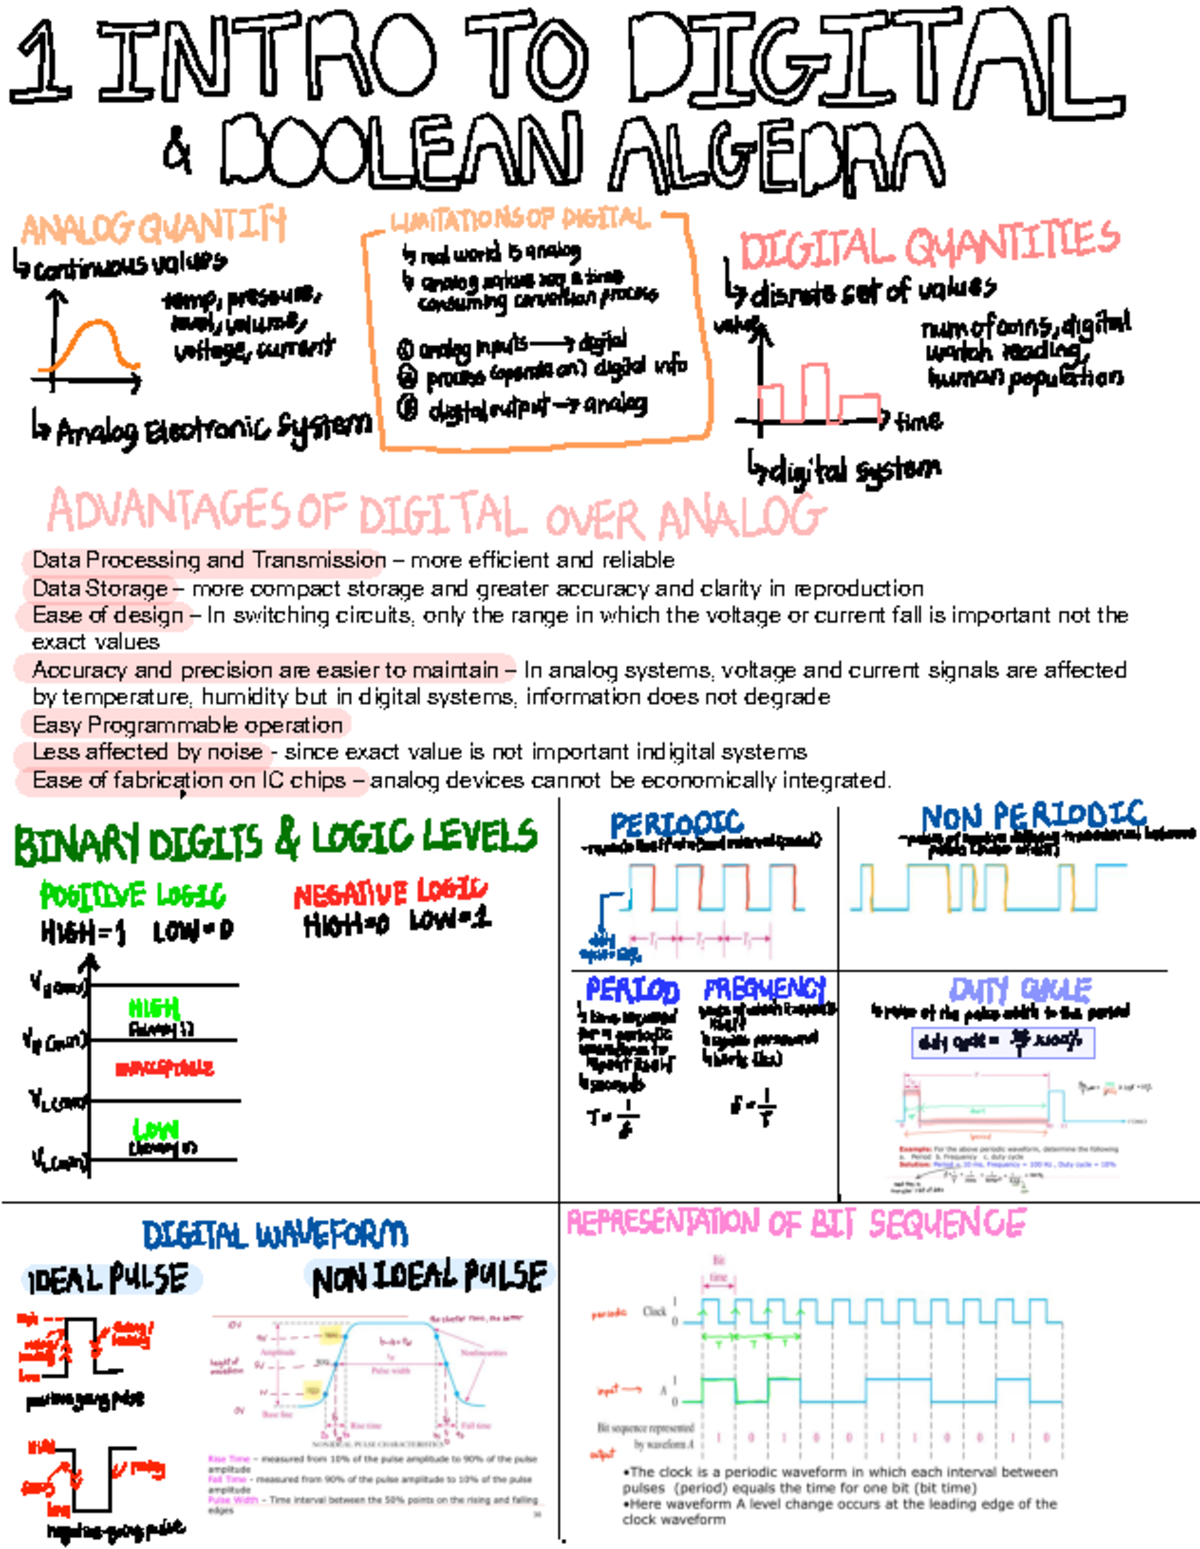 1 INTRO TO DIGITAL
& BOOLEAN ALGEBRA
ANALOG QUANTITY
↳ continuous values
temp, pressure,
level, volume,
voltage, current
↳ Analog Electronic System
LIMITATIONS OF DIGITAL
↳ real world is analog
↳ analog values req a time
consuming convertion process
① analog inputs → digital
② process (operate on) digital info
③ digital output → analog
DIGITAL QUANTITIES
↳ disrete set of values
value
num of coins, digital
watch reading,
human population
time
↳ digital system
ADVANTAGES OF DIGITAL OVER ANALOG
Data Processing and Transmission – more efficient and reliable
Data Storage – more compact storage and greater accuracy and clarity in reproduction
Ease of design – In switching circuits, only the range in which the voltage or current fall is important not the
exact values
Accuracy and precision are easier to maintain – In analog systems, voltage and current signals are affected
by temperature, humidity but in digital systems, information does not degrade
Easy Programmable operation
Less affected by noise - since exact value is not important indigital systems
Ease of fabrication on IC chips – analog devices cannot be economically integrated.
BINARY DIGITS & LOGIC LEVELS
POSITIVE LOGIC
HIGH = 1 LOW = 0
NEGATIVE LOGIC
HIGH=0 LOW=1
VH(max)
HIGH
(binary 1)
VH(min)
UNACCEPTABLE
VL(max)
LOW
(binary 0)
VL(min)
PERIODIC
T1 T2 T3
NON PERIODIC
PERIOD
↳ time required
for a periodic
waveform to
repeat itself
↳ seconds
T = 1/f
FREQUENCY
↳ hertz (Hz)
f = 1/T
DUTY CYCLE
↳ ratio of the pulse width to the period
duty cycle = x100%
Example: For the above periodic waveform, determine the following
a. Period b. Frequency c. duty cycle
Solution: Period = 10 ms, Frequency = 100 Hz , Duty cycle = 10%
DIGITAL WAVEFORM
IDEAL PULSE
High
Low
positive going pulse
HIGH
Low
negative-going pulse
NON IDEAL PULSE
Amplitude
Pulse width
Nonlinearities
Base line
Rise time
Fall time
NONIDEAL PULSE CHARACTERISTICS
Rise Time – measured from 10% of the pulse amplitude to 90% of the pulse
amplitude
Fall Time – measured from 90% of the pulse amplitude to 10% of the pulse
amplitude
Pulse Width – Time interval between the 50% points on the rising and falling
edges
REPRESENTATION OF BIT SEQUENCE
Bit
time
periodic Clock 1
0
T T T
input → A 1
0
Bit sequence represented
by waveform A 1 0 1 0 0 1 1 0 0 1 0
output
•The clock is a periodic waveform in which each interval between
pulses (period) equals the time for one bit (bit time)
•Here waveform A level change occurs at the leading edge of the
clock waveform